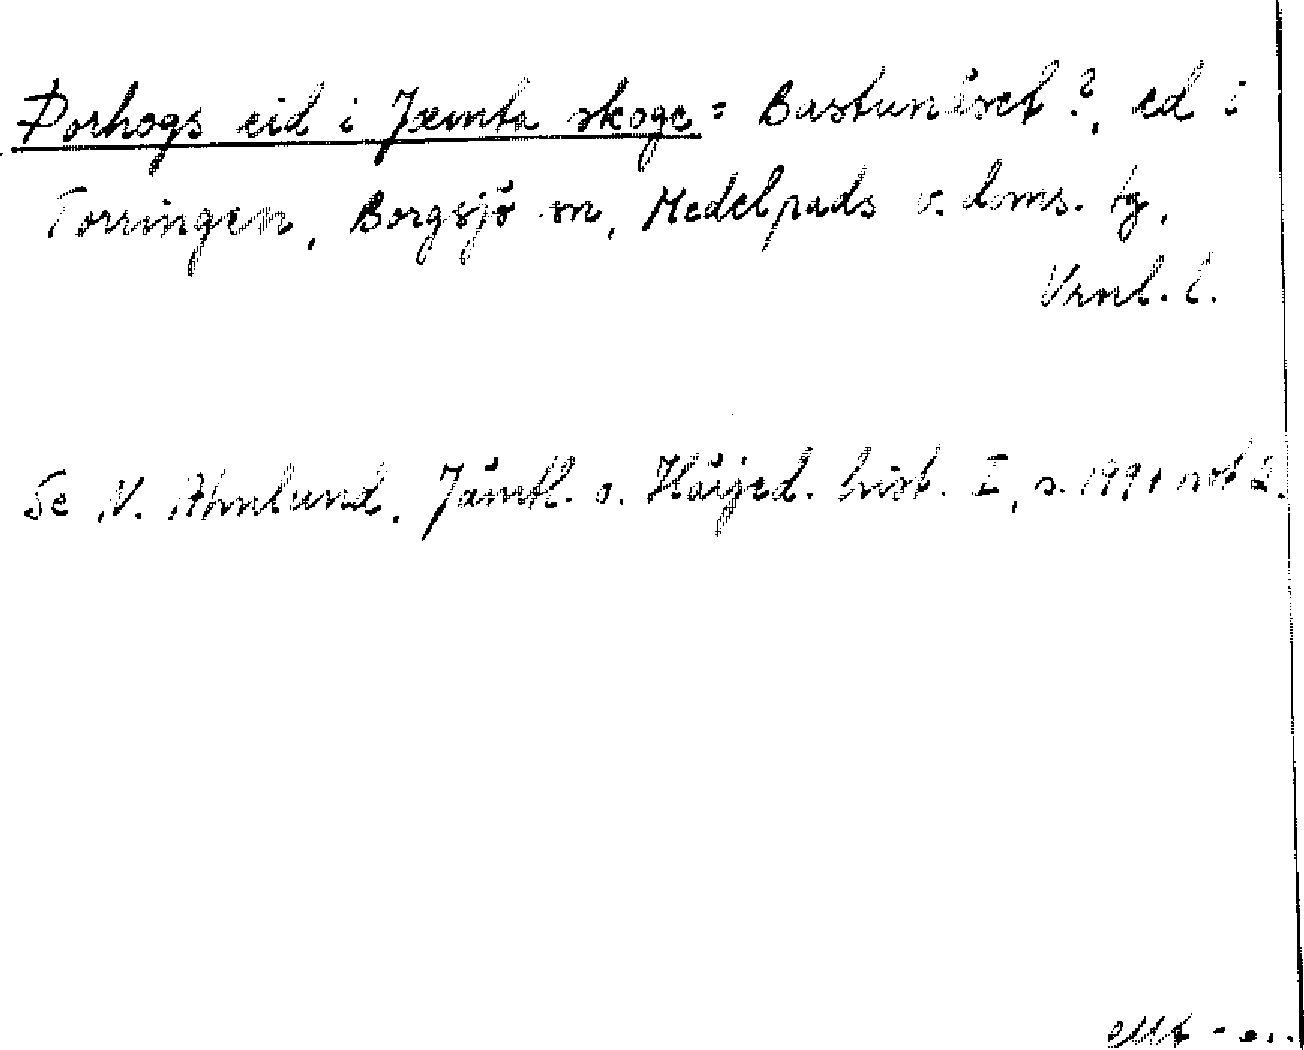 Þorhogs eid i Jæmta skoge = Bastunäset?, ed i
Torringen, Borgsjö sn, Medelpads v. doms. tg,
Vrnl. l.
Se N. Ahnlund, Jämtl. o. Härjed. hist. I, s. 199, not 2.